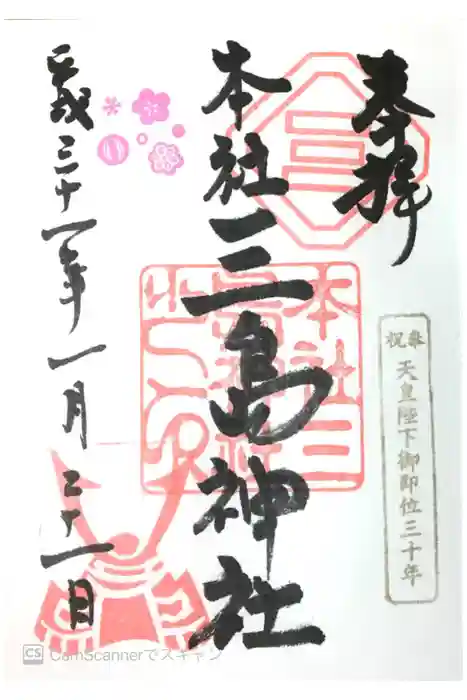 奉拝
奉祝
天皇陛下御即位三十年
本社三島神社
本社三
三
平成三十一年一月二十一日
CS CamScannerでスキャン